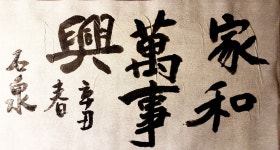 家和
萬事
興
辛丑
春
石泉